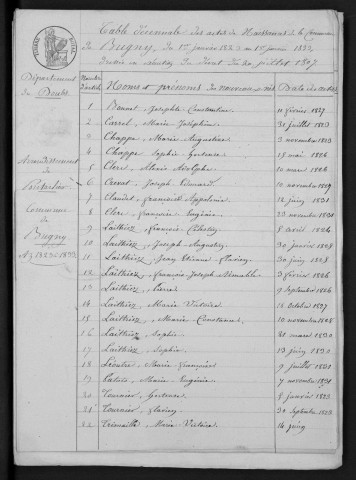 Table Décennale des actes de Naissances de la Commune
de Bugny, du 1er janvier 1823 au 1er janvier 1833,
dressée en exécution du décret du 20 juillet 1807.
Département
du Doubs
Arrondissement
de Pontarlier
Commune
de
Bugny
An 1823-1833
Noms et prénoms du nouveau-né
Date des actes
1 Bonnet, Josephte Constantine 11 février 1827
2 Carrel, Marie Joséphine 31 juillet 1823
3 Chappe, Marie Augustine 3 novembre 1823
4 Chappe Sophie Gertrude 15 mai 1826
5 Clerc, Alexis Adolphe 10 mars 1826
6 Joseph Edouard 10 novembre 1829
7 Claudet, Françoise Appolonie 12 juin 1831
8 Clerc, François Eugène 23 novembre 1831
9 Laithiez, François 8 avril 1824
10 Laithiez, Joseph Augustin 30 janvier 1825
11 Laithiez, Jean Etienne Flavien 30 juin 1825
12 Laithiez, François Joseph Aimable 3 février 1826
13 Laithiez, Pierre 9 septembre 1826
14 Laithiez, Marie Victoire 16 octobre 1827
15 Laithiez, Marie Constance 10 novembre 1828
16 Laithiez, Sophie 21 mars 1830
17 Laithiez, Sophie 13 juin 1830
18 9 juillet 1831
19 Marie Eugénie 7 novembre 1831
20 Tournier, Gertrude 8 janvier 1823
21 Tournier, Flavien 30 septembre 1823
22 Marie Victoire 14 juin